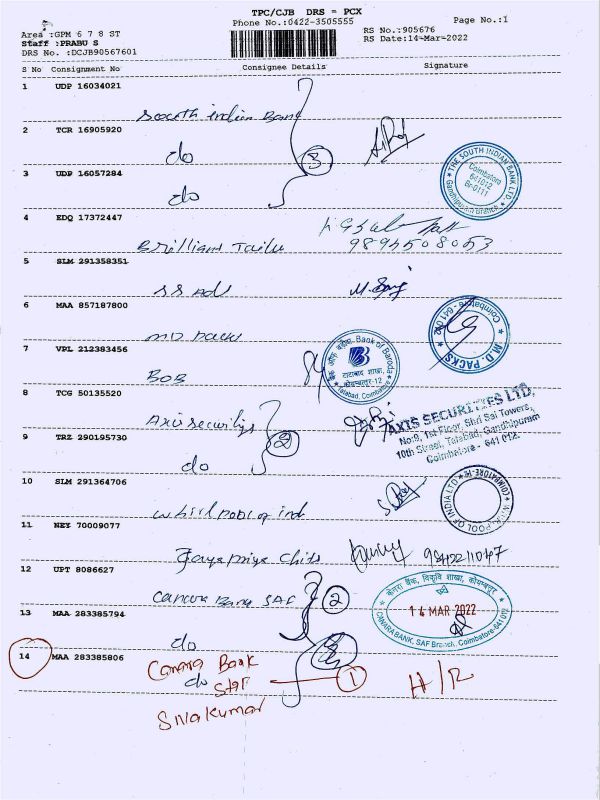 TPC/CJB DRS = PCX
Phone No.:0422-3505555
Page No.:1
Area :GPM 6 7 8 ST
Staff :PRABU S
DRS No. :DCJB90567601
RS No.:905676
RS Date:14-Mar-2022
S No Consignment No Consignee Details Signature
1 UDP 16034021
South indian Bank
2 TCR 16905920
do
3
3 UDP 16057284
do
THE SOUTH INDIAN BANK LTD.
Coimbatore
641012
Br-0111
Gandhipuram Branch
4 EDQ 17372447
Brilliant Tailu
9894508053
5 SLM 291358351
SS Ads
6 MAA 857187800
MD Packs
M.D. PACKS
Coimbatore - 641 012
7 VPL 212383456
BOB
बैंक ऑफ बड़ौदा, Bank of Baroda
टाटाबाद शाखा,
कोयम्बत्तूर-12
Tatabad, Coimbatore
8 TCG 50135520
Axis securitys
2
AXIS SECURITIES LTD,
No:9, 1st Floor, Shri Sai Towers,
10th Street, Tatabad, Gandhipuram
Coimbatore - 641 012.
9 TRZ 290195730
do
10 SLM 291364706
whirlpool of ind
POOL OF INDIA LTD
11 NEY 70009077
Jayapriya Chits
12 UPT 8086627
Canara Bank SAF
2
केनरा बैंक,
14 MAR 2022
CANARA BANK, SAF Branch, Coimbatore-641 012
13 MAA 283385794
do
14 MAA 283385806
do
Canara Bank
SAF
1
H/R
Sivakumar